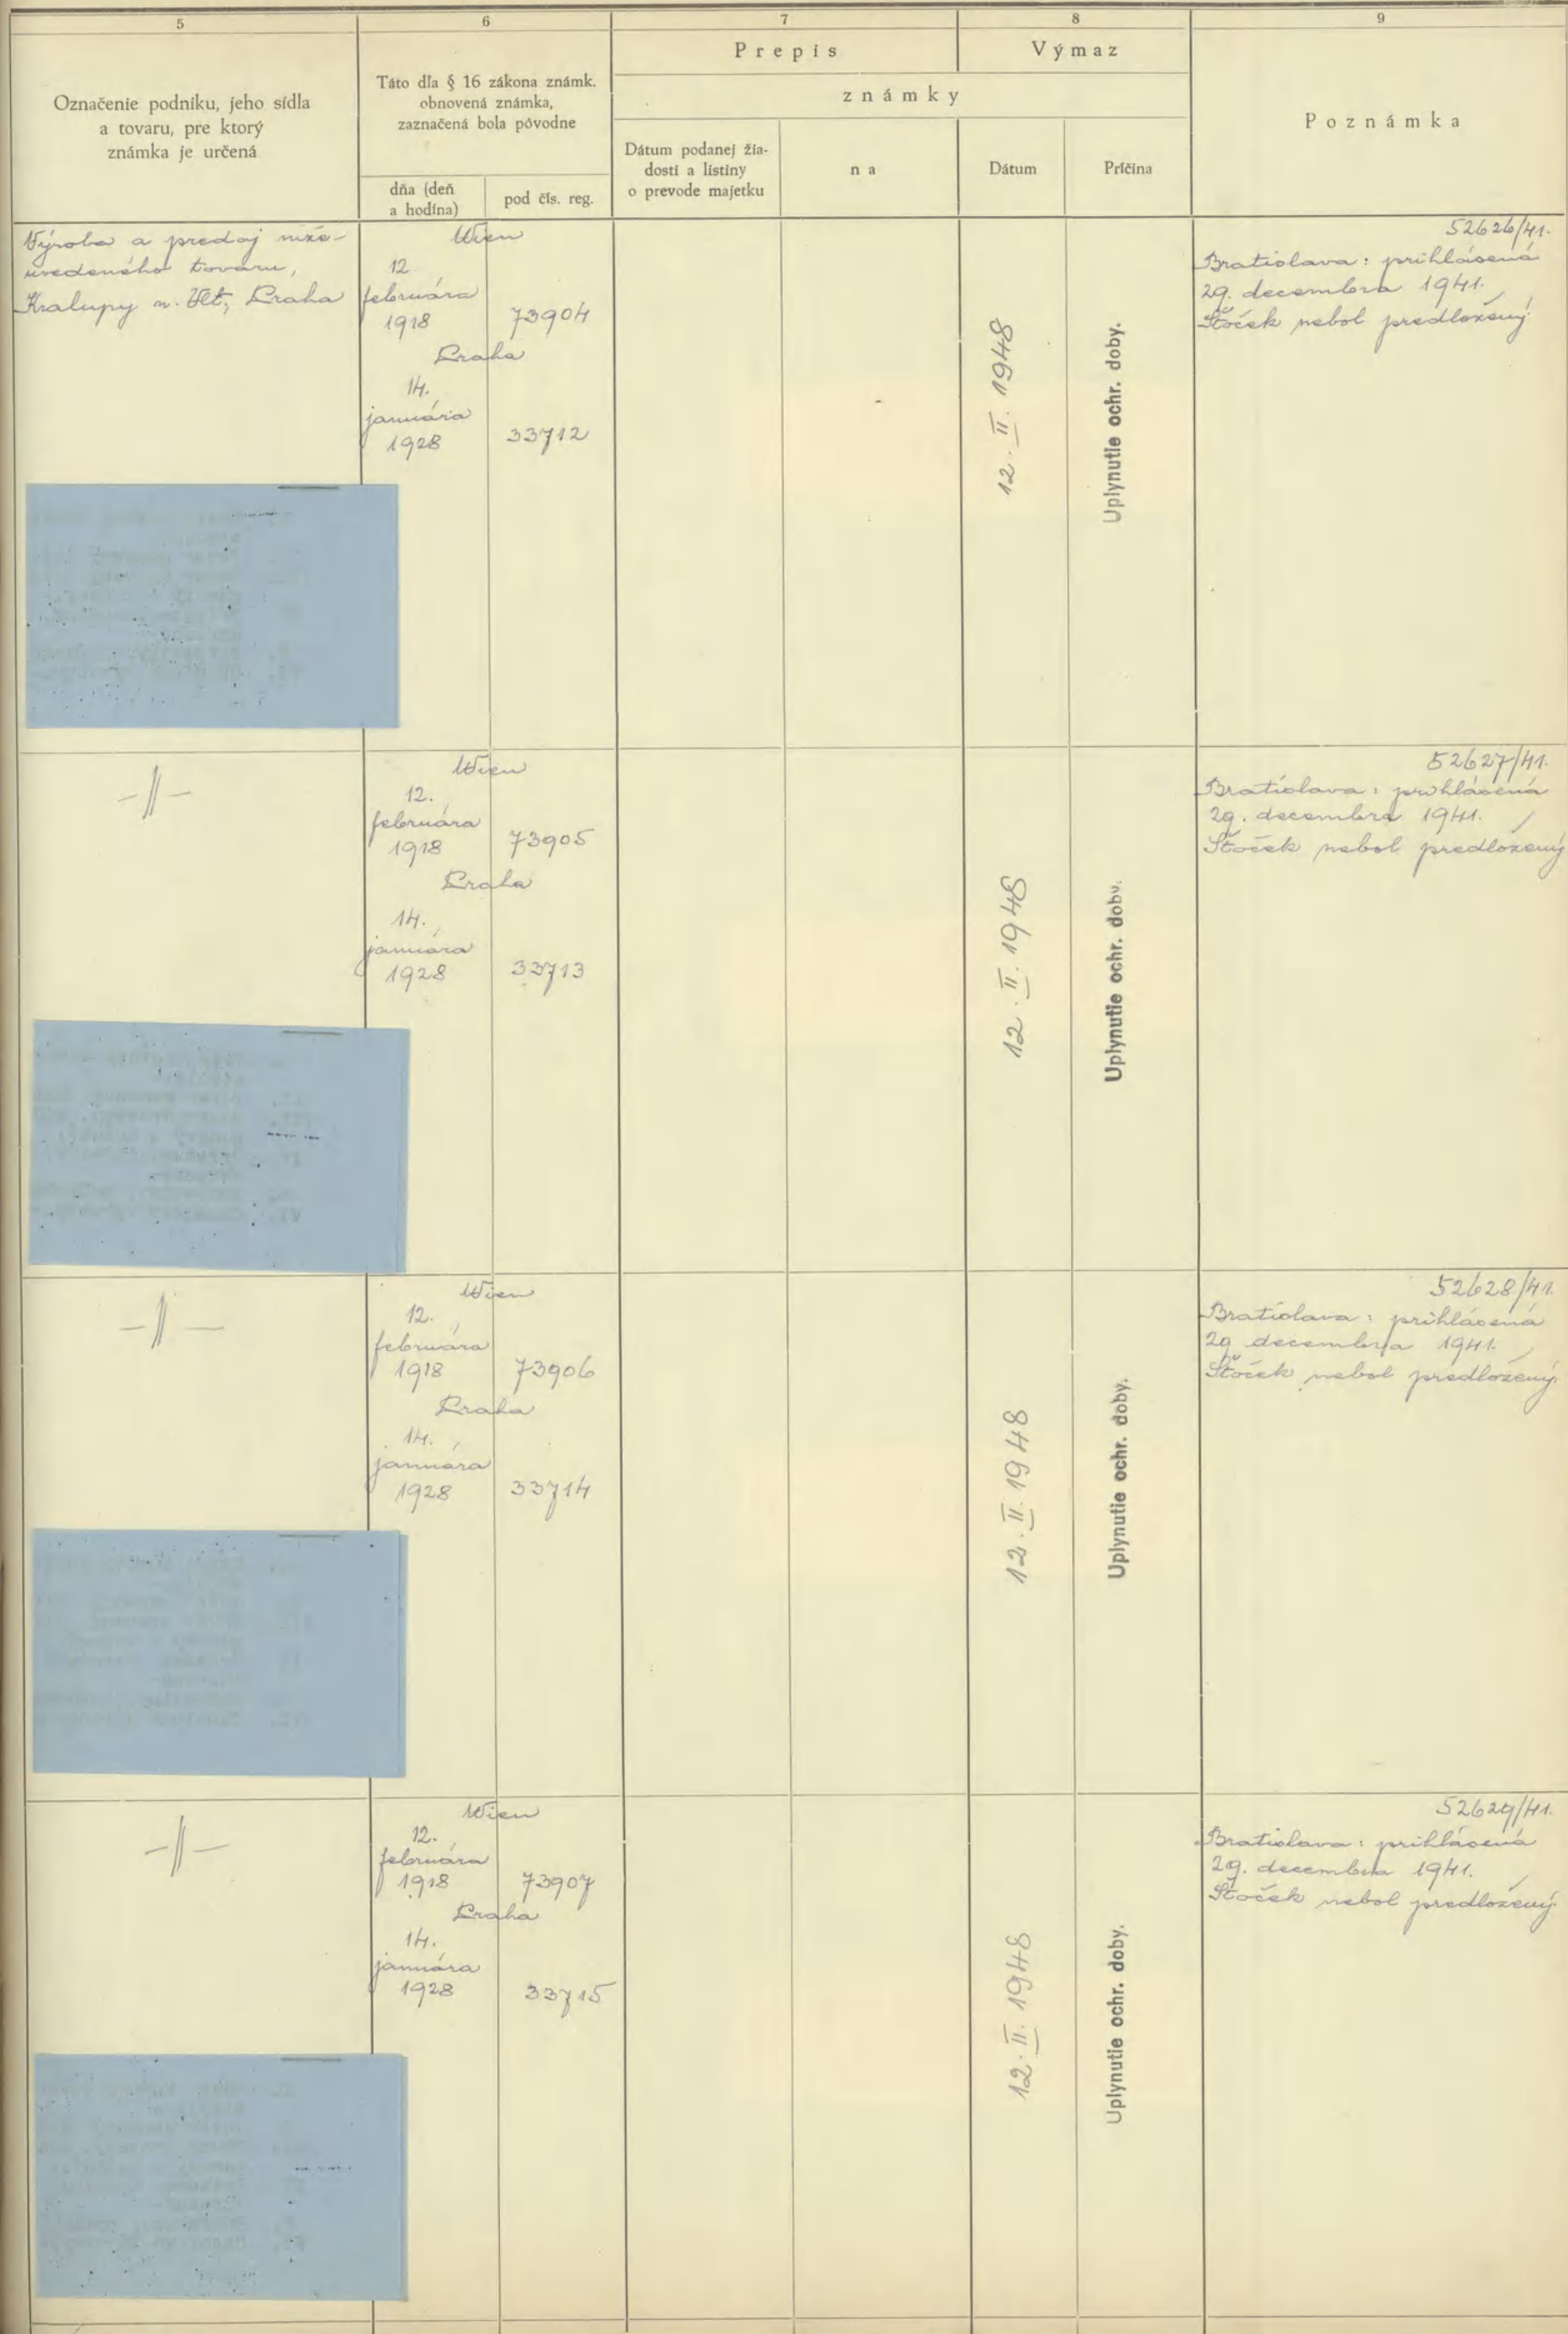 5
6
7
8
9
Označenie podniku, jeho sídla
a tovaru, pre ktorý
známka je určená
Táto dľa § 16 zákona známk.
obnovená známka,
zaznačená bola pôvodne
dňa (deň
a hodina)
pod čís. reg.
Prepis
Výmaz
známky
Dátum podanej žia-
dosti a listiny
o prevode majetku
na
Dátum
Príčina
Poznámka
Výroba a predaj niže-
uvedeného tovaru,
Kralupy n. Vlt., Praha
Wien
12.
februára
1918
73904
Praha
14.
januára
1928
33712
12. II. 1948
Uplynutie ochr. doby.
52626/41.
Bratislava: prihlásená
29. decembra 1941.
Štoček nebol predložený.
-//-
Wien
12.
februára
1918
73905
Praha
14.
januára
1928
33713
12. II. 1948
Uplynutie ochr. doby.
52627/41.
Bratislava: prihlásená
29. decembra 1941.
Štoček nebol predložený
-//-
Wien
12.
februára
1918
73906
Praha
14.
januára
1928
33714
12. II. 1948
Uplynutie ochr. doby.
52628/41.
Bratislava: prihlásená
29 decembra 1941.
Štoček nebol predložený.
-//-
Wien
12.
februára
1918
73907
Praha
14.
januára
1928
33715
12. II. 1948
Uplynutie ochr. doby.
52629/41.
Bratislava: prihlásená
29. decembra 1941.
Štoček nebol predložený.